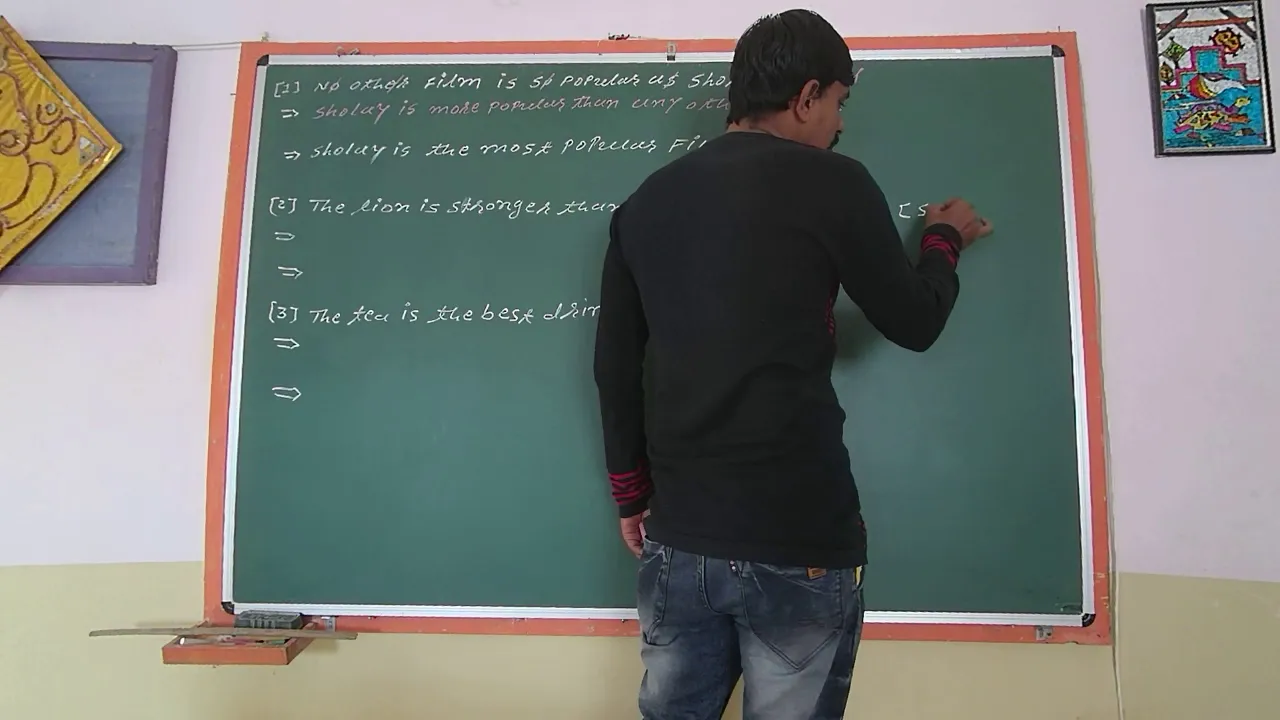 [1] No other Film is so popular as
⇒ sholay is more popular than any
⇒ sholay is the most popular
[2] The lion is stronger than [
⇒
⇒
[3] The tea is the best
⇒
⇒